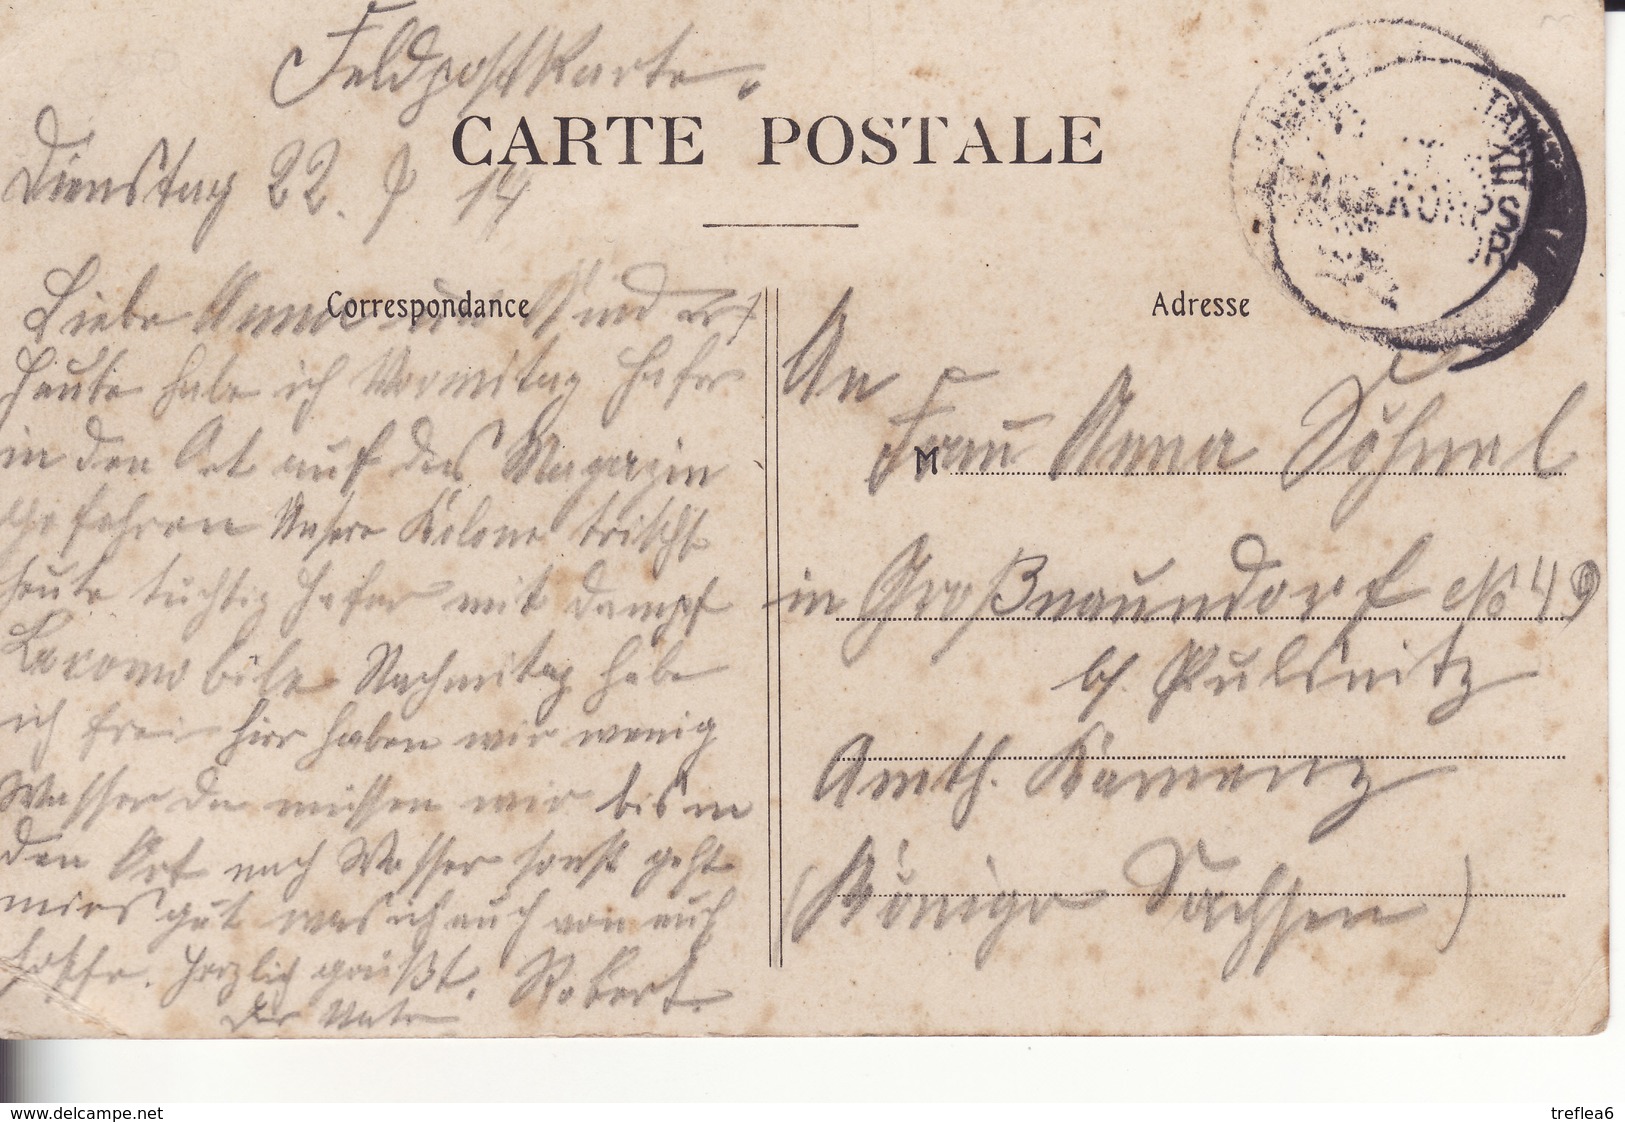 Feldpostkarte.
CARTE POSTALE
Dienstag 22. 9 14
Correspondance
Adresse
Liebe Anna und Kinder!
Heute habe ich Vormitag Hafer
in den Ort auf das Magazin
gefahren Unsere Kolone trischt
heute tüchtig Hafer mit Dampf
Locomobile Nachmitag habe
ich frei hier haben wir wenig
Wasser da müssen wir bis in
den Ort nach Wasser sonst geht
mirs gut was ich auch von euch
hoffe. Herzlich grüßt. Robert.
der Vater
An
M
Frau Anna Söhnel
in Großnaundorf No 49
b/. Pulsnitz
Amth. Kamenz
(Königr Sachsen)
www.delcampe.net
treflea6